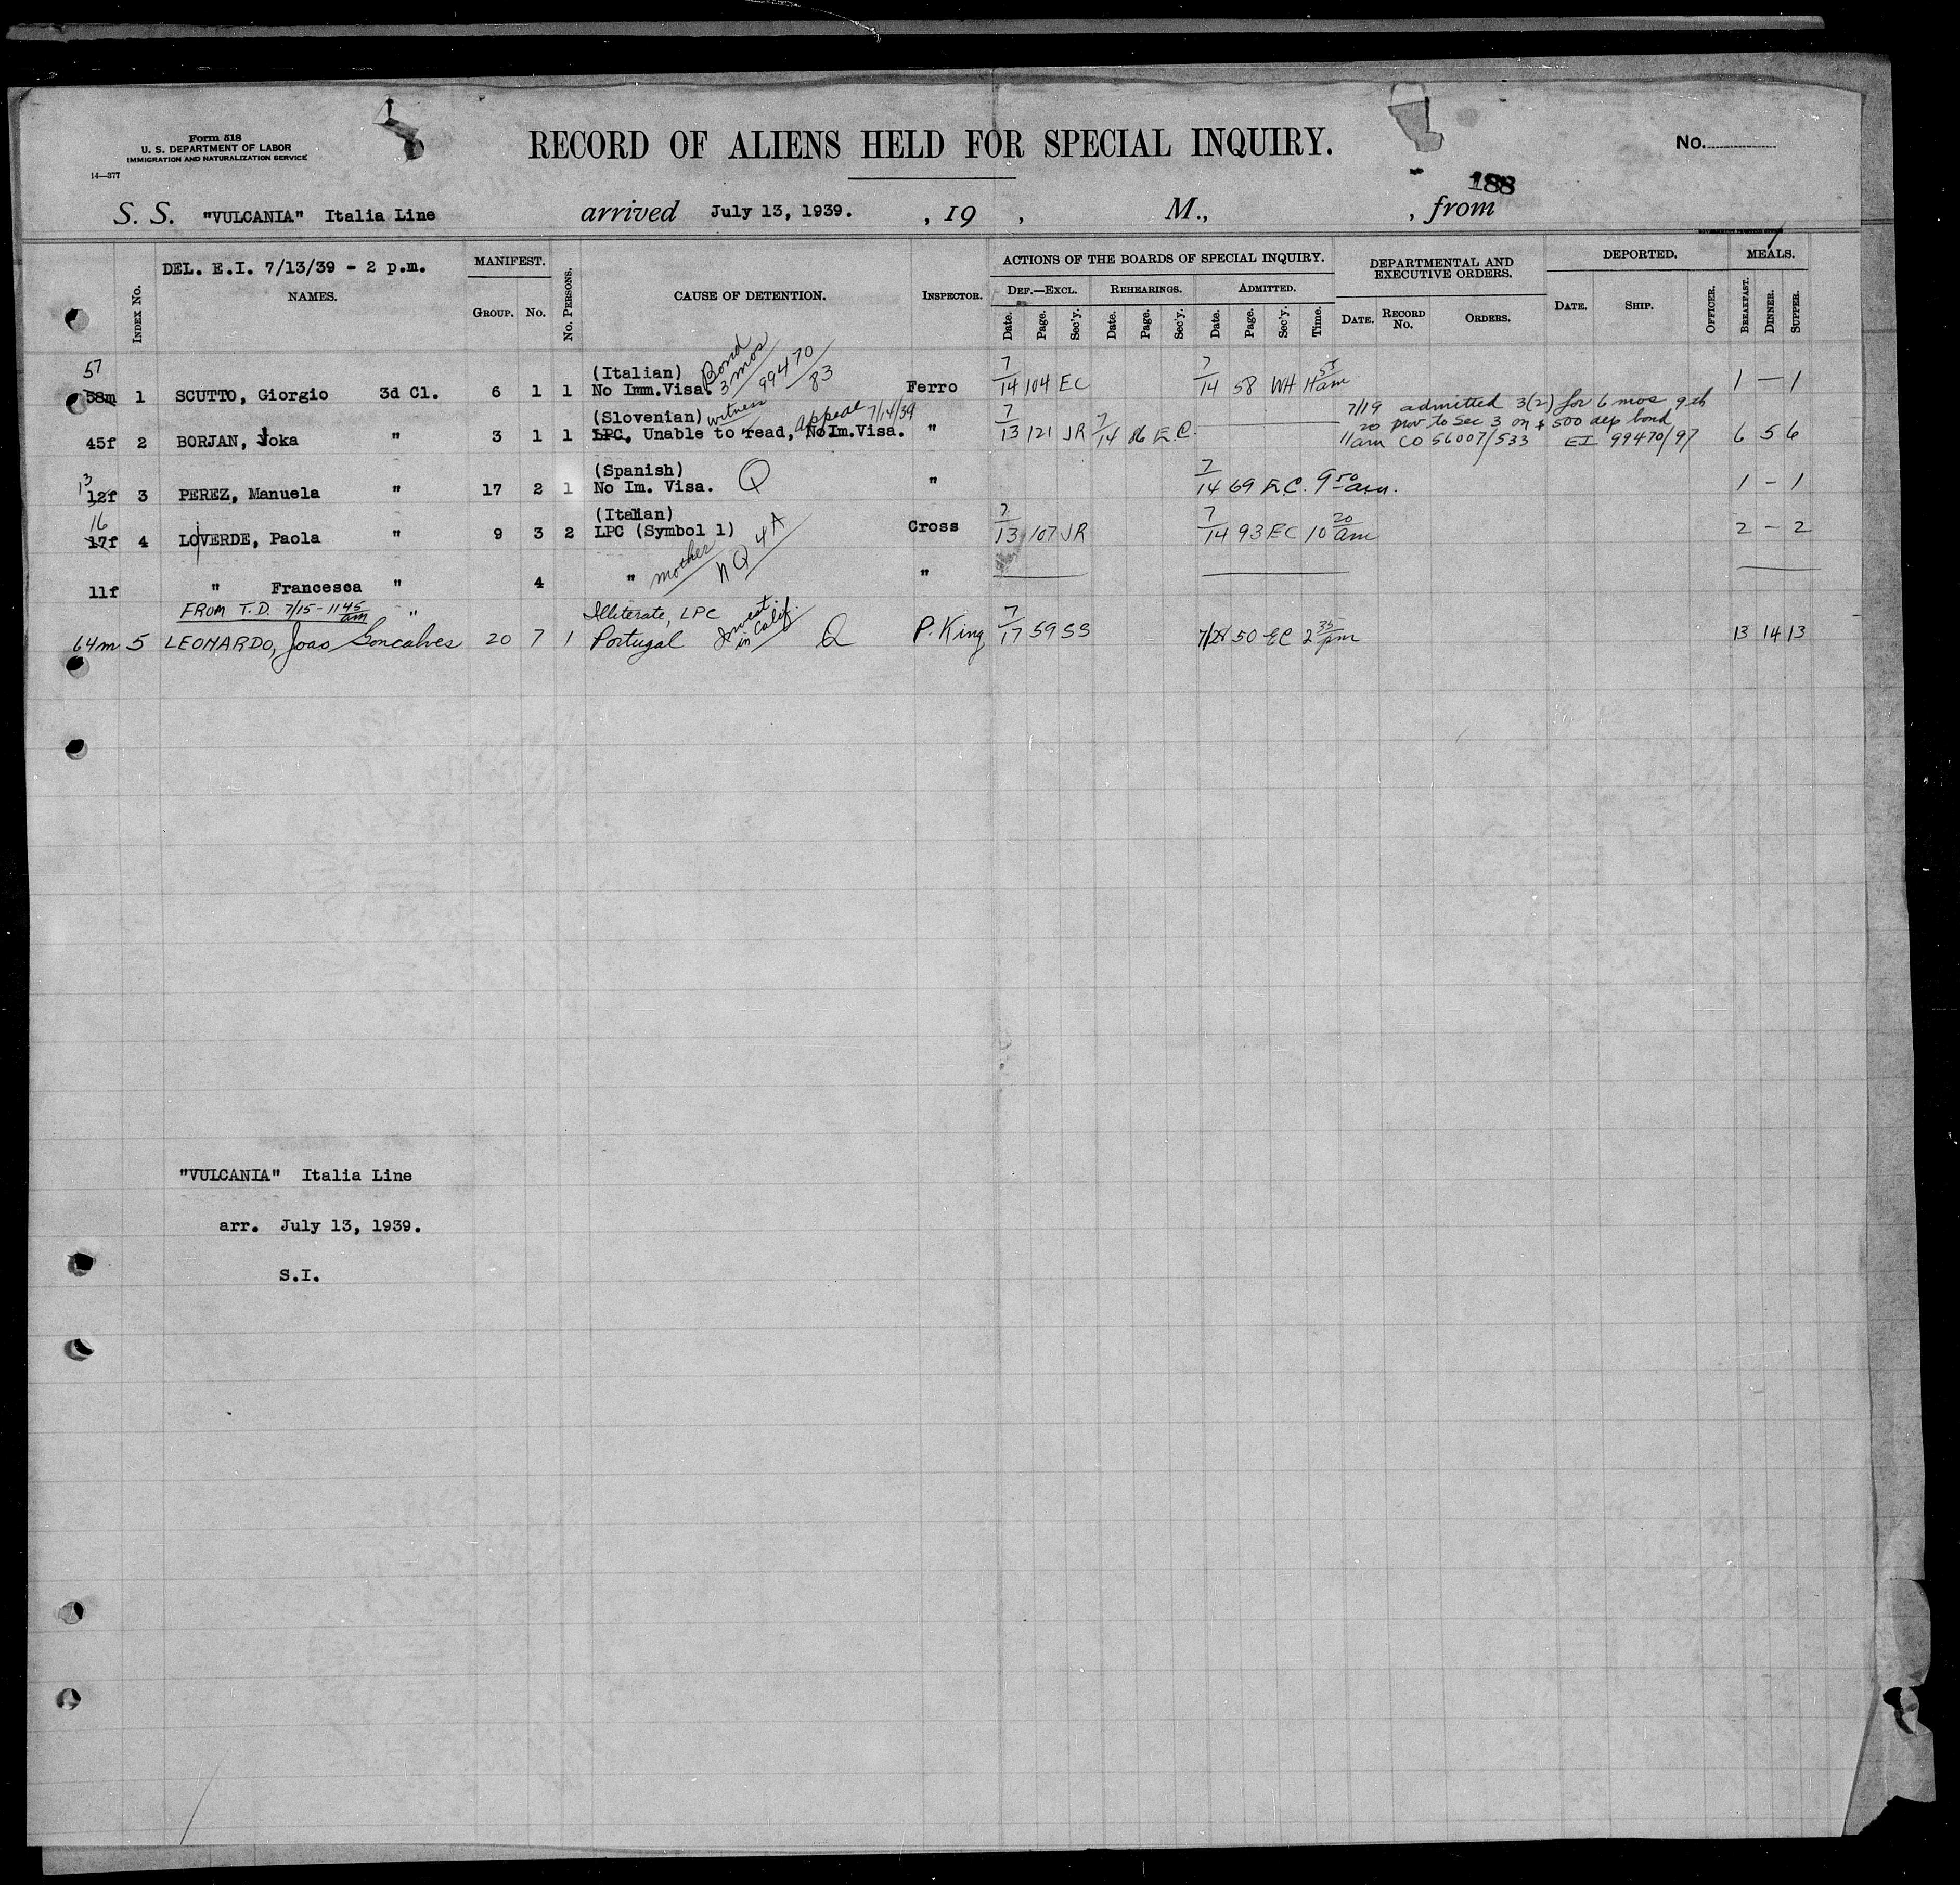 Form 518
U. S. DEPARTMENT OF LABOR
IMMIGRATION AND NATURALIZATION SERVICE
14—377
RECORD OF ALIENS HELD FOR SPECIAL INQUIRY.
No.
188
S. S. "VULCANIA" Italia Line arrived July 13, 1939. , 19 , M., , from
DEL. E.I. 7/13/39 - 2 p.m.
INDEX No. NAMES. MANIFEST. GROUP. No. No. PERSONS. CAUSE OF DETENTION. INSPECTOR.
ACTIONS OF THE BOARDS OF SPECIAL INQUIRY.
DEF.—EXCL. REHEARINGS. ADMITTED.
Date. Page. Sec'y. Date. Page. Sec'y. Date. Page. Sec'y. Time.
DEPARTMENTAL AND EXECUTIVE ORDERS.
DATE. RECORD No. ORDERS.
DEPORTED.
DATE. SHIP. OFFICER.
MEALS.
BREAKFAST. DINNER. SUPPER.
57 (Italian) Bond 3 mos 99470/83
58m 1 SCUTTO, Giorgio 3d Cl. 6 1 1 No Imm.Visa. Ferro 7/14 104 EC 7/14 58 WH 11 55 am 1 — 1
(Slovenian) witness appeal 7/14/39
45f 2 BORJAN, Joka " 3 1 1 LPC, Unable to read, No Im.Visa. " 7/13 121 JR 7/14 86 E.C. 6 5 6
7/19 admitted 3(2) for 6 mos 9th
20 prov to Sec 3 on $500 dep bond
11am CO 56007/533 EI 99470/97
13 (Spanish)
12f 3 PEREZ, Manuela " 17 2 1 No Im. Visa. Q " 7/14 69 E.C. 9 50 am. 1 - 1
16 (Italian)
17f 4 LOVERDE, Paola " 9 3 2 LPC (Symbol 1) Cross 7/13 107 JR 7/14 93 EC 10 20 am 2 — 2
mother NQ 4A
11f " Francesca " 4 " "
FROM T.D. 7/15-11 45 am " Illiterate, LPC Invest. in Calif.
64m 5 LEONARDO, Joao Goncalves 20 7 1 Portugal Q P. King 7/17 59 SS 50 EC 2 35 pm 13 14 13
"VULCANIA" Italia Line
arr. July 13, 1939.
S.I.